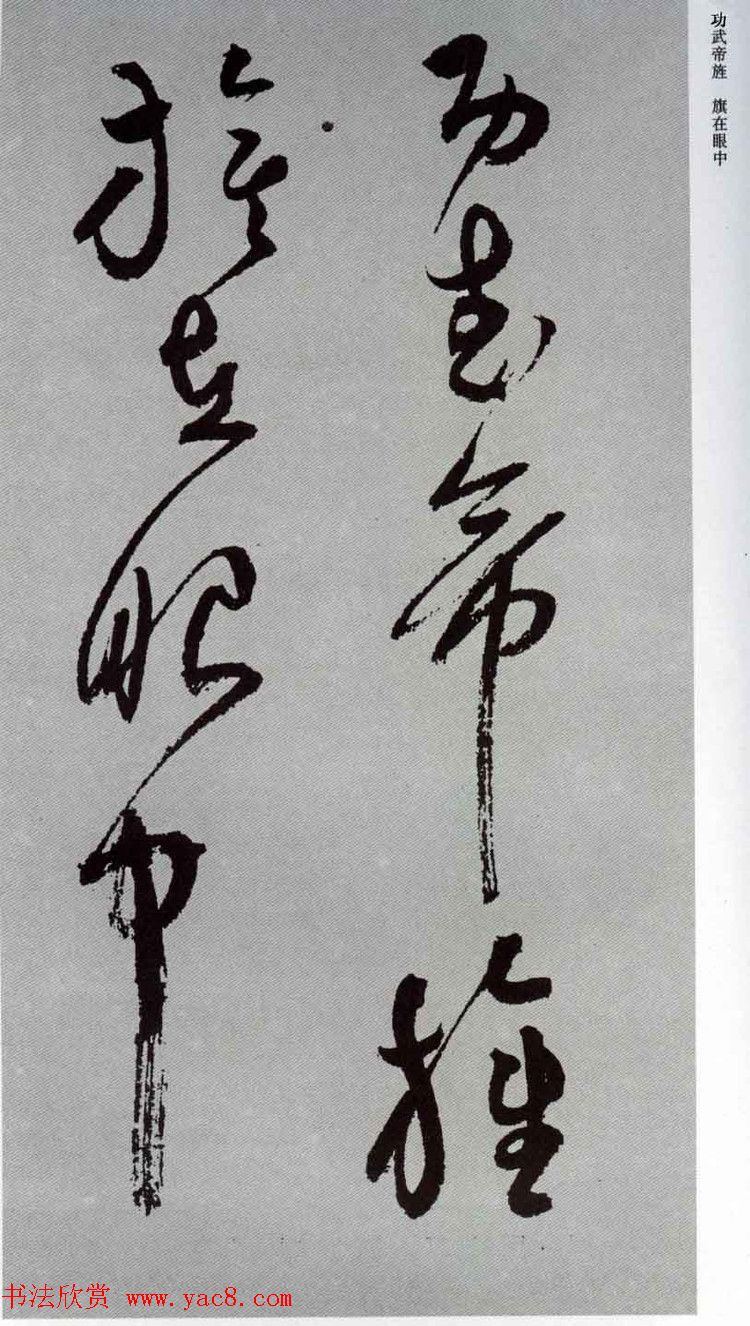 功武帝旌 旗在眼中
功武帝旌
旗在眼中
书法欣赏 www.yac8.com